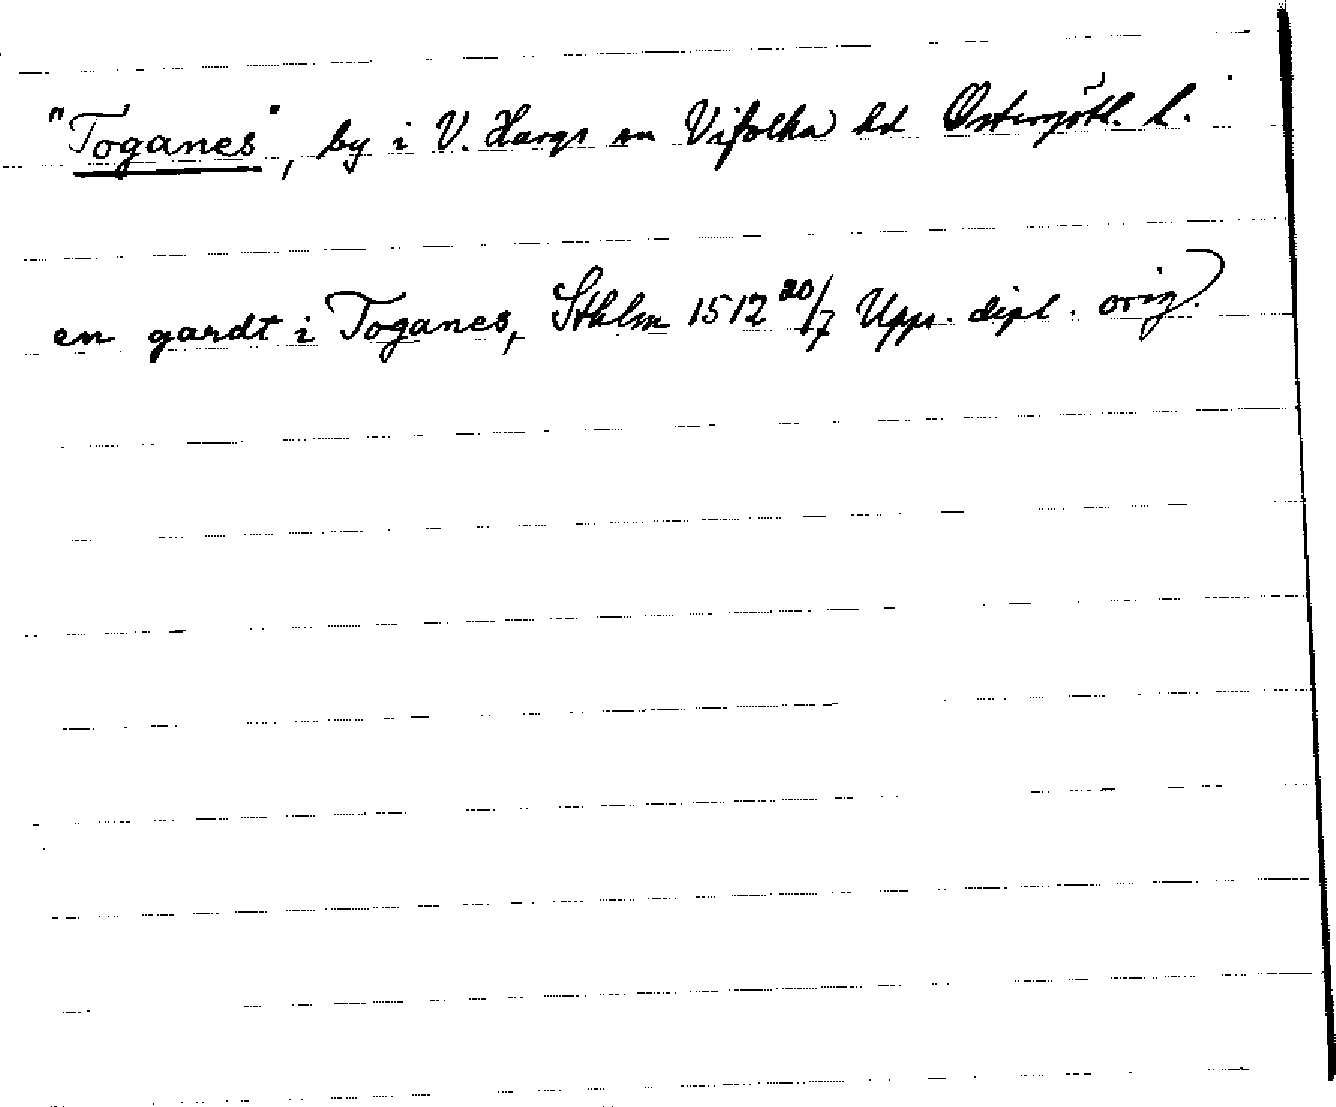 "Toganes", by i V. Hargs sn Vifolka hd Östergötl. l.
en gardt i Toganes, Sthlm 1512 20/7 Upps. dipl. orig.